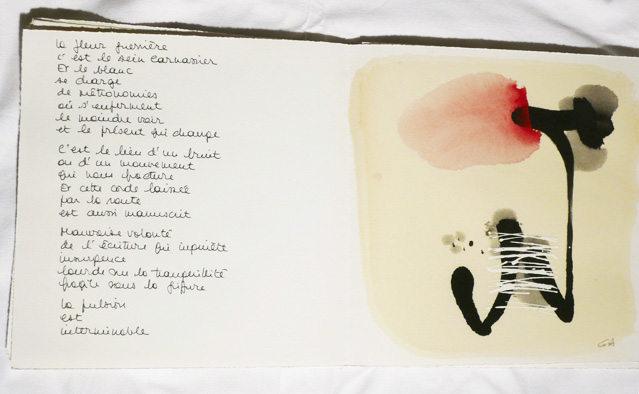 La fleur guerrière
c'est le sein carnassier
Et le blanc
se charge
de métonymies
où s'enferment
le moindre noir
et le présent qui change
C'est le lieu d'un bruit
ou d'un mouvement
qui nous fracture
Et cette corde laissée
par la route
est aussi manuscrit
Mauvaise volonté
de l'écriture qui inquiète
insurgence
lourde sur la tranquillité
fragile sous la
La pulsion
est
interminable